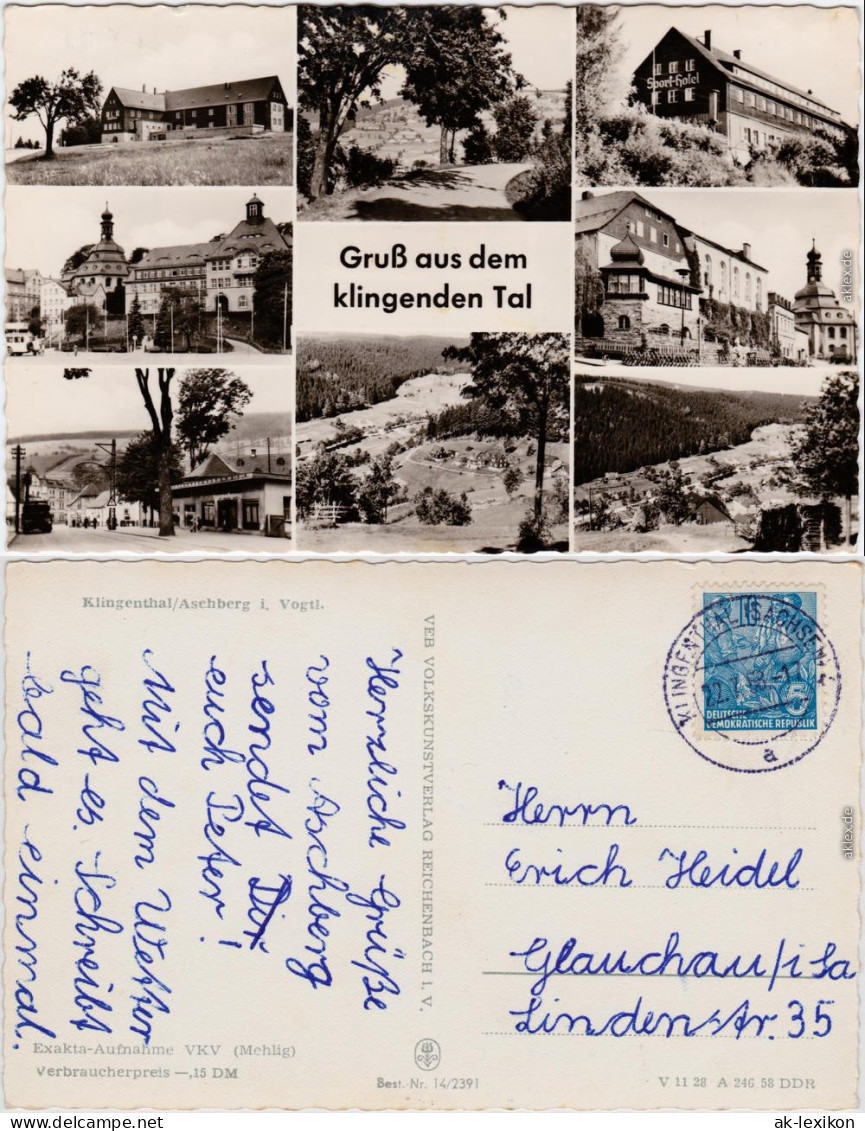 Sport-Hotel
Gruß aus dem
klingenden Tal
Klingenthal/Aschberg i. Vogtl.
Herzliche Grüße
vom Aschberg
sendet Dir
euch Peter!
Mit dem Wetter
geht es. Schreibt
bald einmal.
Exakta-Aufnahme VKV (Mehlig)
Verbraucherpreis —,15 DM
VEB VOLKSKUNSTVERLAG REICHENBACH i. V.
Best.-Nr. 14/2391
KLINGENTHAL (SACHSEN)
a
5
DEUTSCHE
DEMOKRATISCHE REPUBLIK
Herrn
Erich Heidel
Glauchau/i Sa
Lindenstr. 35
V 11 28 A 246 58 DDR
aklex.de
aklex.de
www.ak-ansichtskarten.de
ak-lexikon